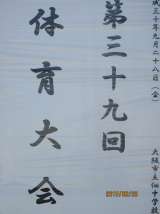 成三十年九月二十八日（金）
第三十九回
体育大会
大阪市立
中学校